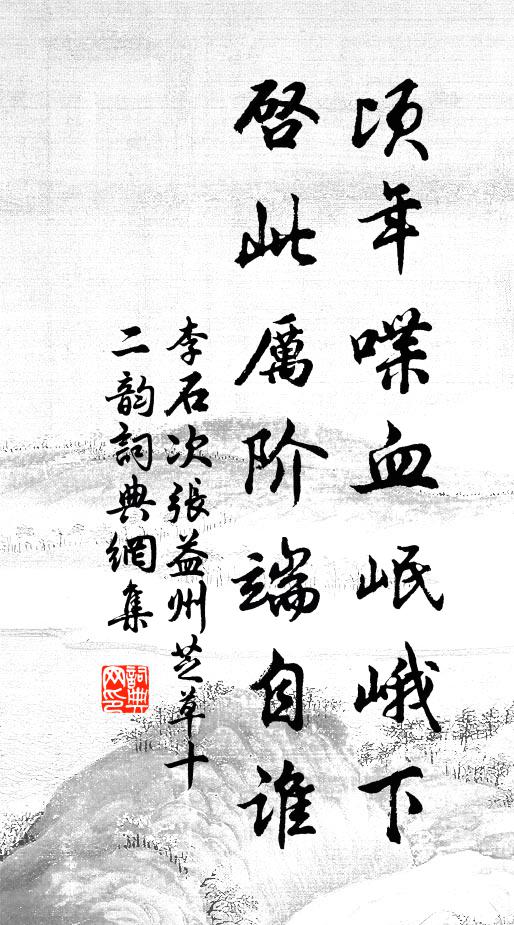 顷年喋血岷峨下
启此厲阶端自谁
李石次張益州芝草十
二韵詞典網集
詞典网印